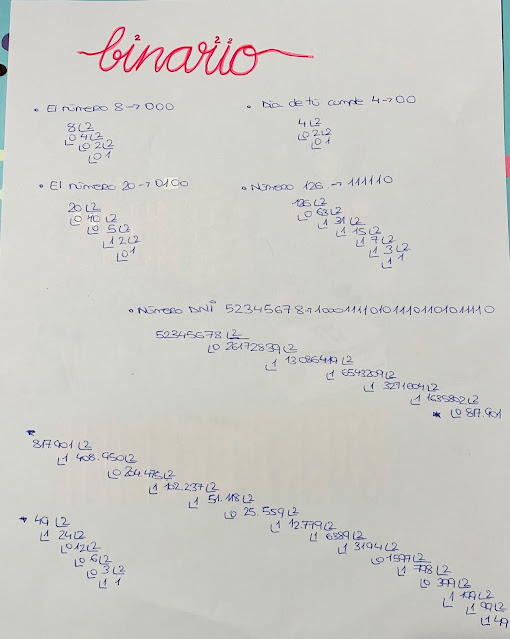 binario
2 2 2
• El número 8 → 000
8 2
0 4 2
0 2 2
0 1
• Día de tú cumple 4 → 00
4 2
0 2 2
0 1
• El número 20 → 0100
20 2
0 10 2
0 5 2
1 2 2
0 1
• Número 126 → 111110
126 2
0 63 2
1 31 2
1 15 2
1 7 2
1 3 2
1 1
• Número DNI 52345678 →
52345678 2
0 26172839 2
1 13086419 2
1 6543209 2
1 3271604 2
1 1635802 2
* 0 817.901
* 817.901 2
1 408.950 2
0 204.475 2
1 102.237 2
1 51.118 2
0 25.559 2
1 12.779 2
1 6389 2
1 3194 2
0 1597 2
1 798 2
0 399 2
1 199 2
1 99 2
1 49
* 49 2
1 24 2
0 12 2
0 6 2
0 3 2
1 1